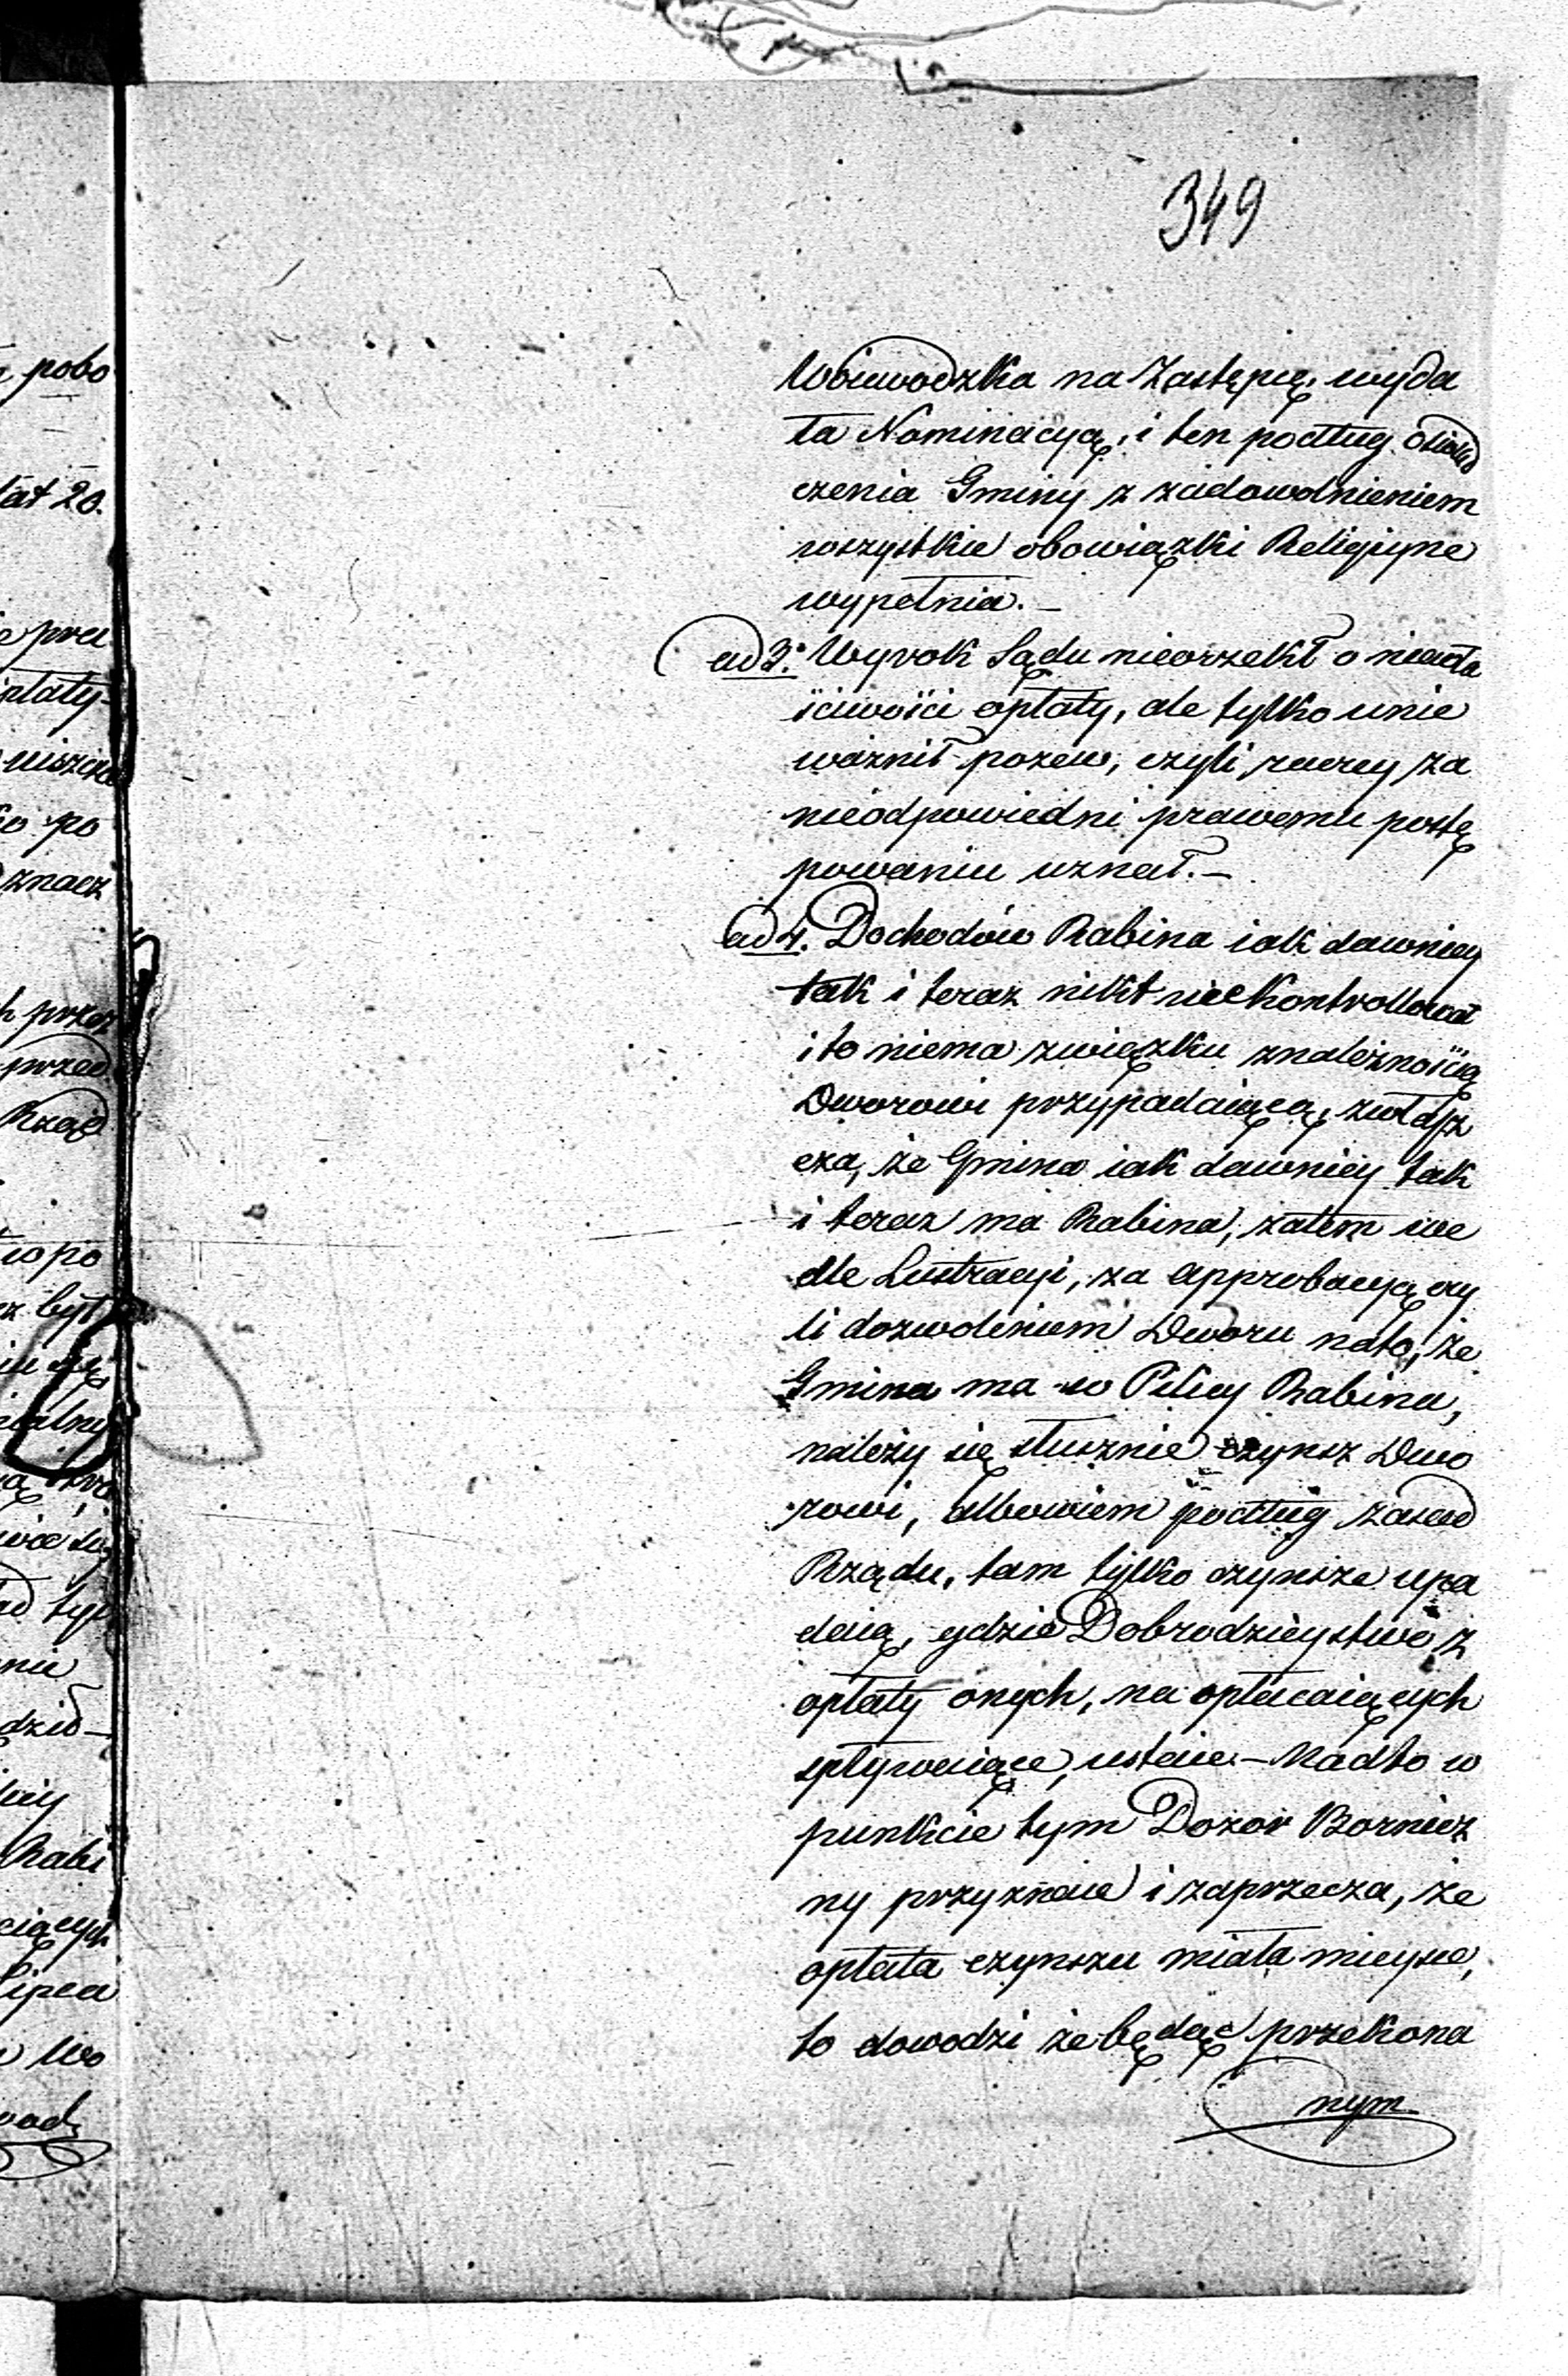 349
Woiewodzka na Zastępcę wyda
ła Nominacyą, i ten podług oświad
czenia Gminy z zadowolnieniem
wszystkie obowiązki Religiyne
wypełnia. –
ad 3. Wyrok Sądu nieorzekł o niewła
ściwości opłaty, ale tylko unie
ważnił pozew, czyli raczey za
nieodpowiedni prawemu postę
powaniu uznał. –
ad 4. Dochodów Rabina iak dawniey
tak i teraz nikt niekontrollował
i to niema związku znależnością
Dworowi przypadaiącą, zwłasz
cza, że Gmina iak dawniey tak
i teraz ma Rabina, zatem we
dle Lustracyi, za approbacyą czy
li dozwoleniem Dworu nato, że
Gmina ma w Pilicy Rabina,
należy się słusznie czynsz Dwo
rowi, albowiem podług zasad
Rządu, tam tylko czynsze upa
daią, gdzie Dobrodzieystwo z
opłaty onych, na opłacaiących
spływaiące, ustaie. – Nadto w
punkcie tym Dozor Bożnicz
ny przyznaie i zaprzecza, że
opłata czynszu miała mieysce,
to dowodzi że będąc przekona
nym
pobo
lat 20.
pra
płaty
po
znacz
przez
przed
Rząd
po
był
się
tyl
nie
dził –
Rabi
ciących
Lipca
Wo
wodz